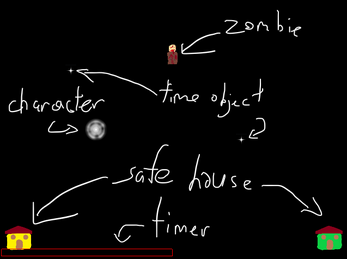 zombie
time object
character
safe house
timer